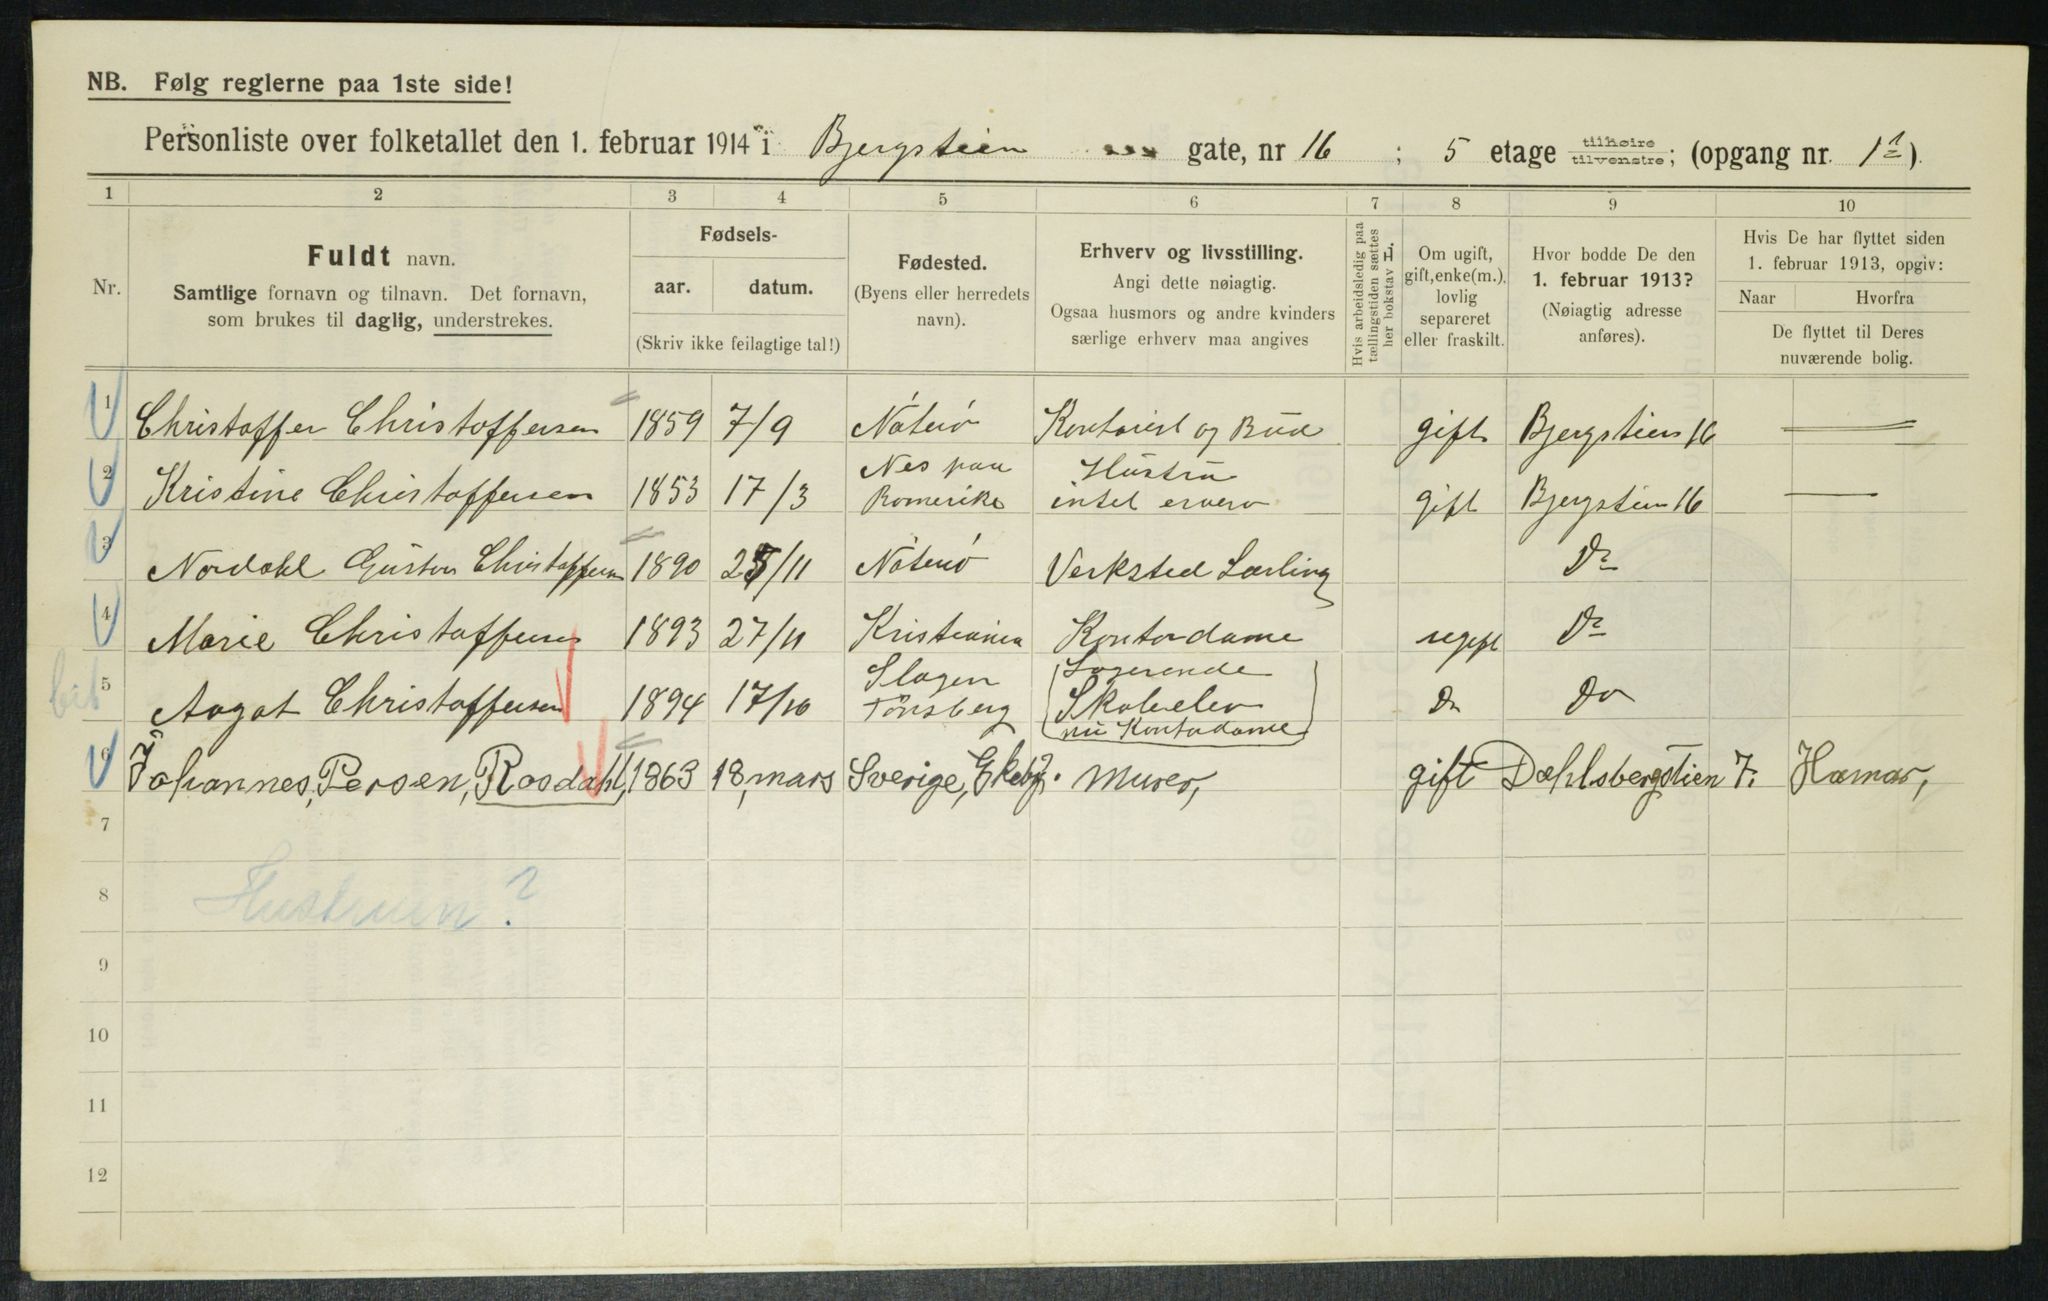 NB. Følg reglerne paa 1ste side!
Personliste over folketallet den 1. februar 1914 i Bjergstien gate, nr 16 ; 5 etage tilhøire tilvenstre; (opgang nr. 1).
1 2 3 4 5 6 7 8 9 10
Nr.
Fuldt navn.
Samtlige fornavn og tilnavn. Det fornavn,
som brukes til daglig, understrekes.
Fødsels-
aar. datum.
(Skriv ikke feilagtige tal!)
Fødested.
(Byens eller herredets
navn).
Erhverv og livsstilling.
Angi dette nøiagtig.
Ogsaa husmors og andre kvinders
særlige erhverv maa angives
Hvis arbeidsledig paa
tællingstiden sættes
her bokstav L.
Om ugift,
gift, enke(m.),
lovlig
separeret
eller fraskilt.
Hvor bodde De den
1. februar 1913?
(Nøiagtig adresse
anføres).
Hvis De har flyttet siden
1. februar 1913, opgiv:
Naar Hvorfra
De flyttet til Deres
nuværende bolig.
1 Christoffer Christoffersen 1859 7/9 Nöterö Kontorist og Bud gift Bjergstien 16 —
2 Kristine Christoffersen 1853 17/3 Nes paa Romerike Hustru intet erverv gift Bjergstien 16 —
3 Nordahl Gustav Christoffersen 1890 /11 Nöterö Verksted Lærling Do
4 Marie Christoffersen 1893 27/11 Kristiania Kontordame ugift Do
5 Aagot Christoffersen 1894 17/10 Slagen Tönsberg Logerende Skoleelev nu Kontordame Do Do
6 Johannes, Persen, Rosdahl, 1863 18, mars Sverige, Ekeby. Murer, gift Dæhlsbergstien 7. Hamar,
7
8 Hustruen?
9
10
11
12